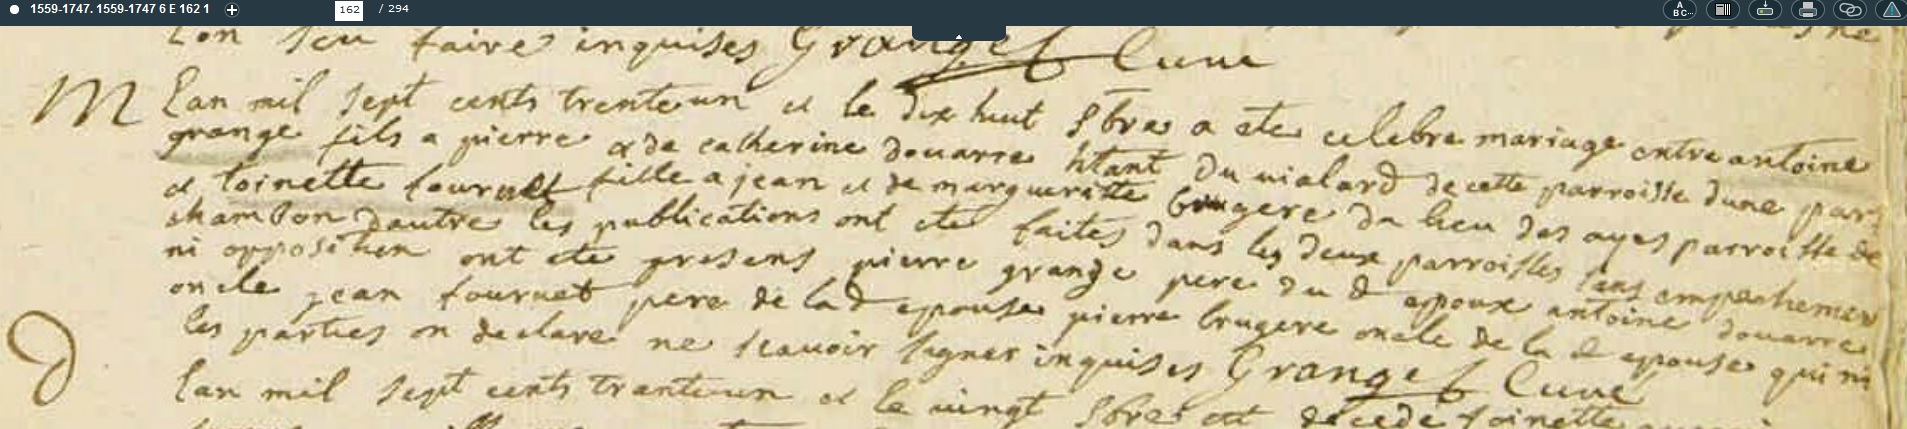 1559-1747. 1559-1747 6 E 162 1
162 / 294
A BC...
Lon sceu faire inquises Grange Cure
M
Lan mil sept cents trente un et le dix huit 8bre a ete celebre mariage entre antoine
grange fils a pierre & de catherine douarre htant du vialard de cette parroisse dune part
et toinette fournet fille a jean et de margueritte brugere du lieu des ayes parroisse de
chambon dautre les publications ont ete faites dans les deux parroisses sans empechemen
ni opposition ont ete presens pierre grange pere du d epoux antoine douarre
oncle jean fournet pere de la d epouse pierre brugere oncle de la d epouse qui ni
les parties on declare ne scavoir signer inquises Grange Cure
D
Lan mil sept cents trante un et le vingt 8bre est decede toinette